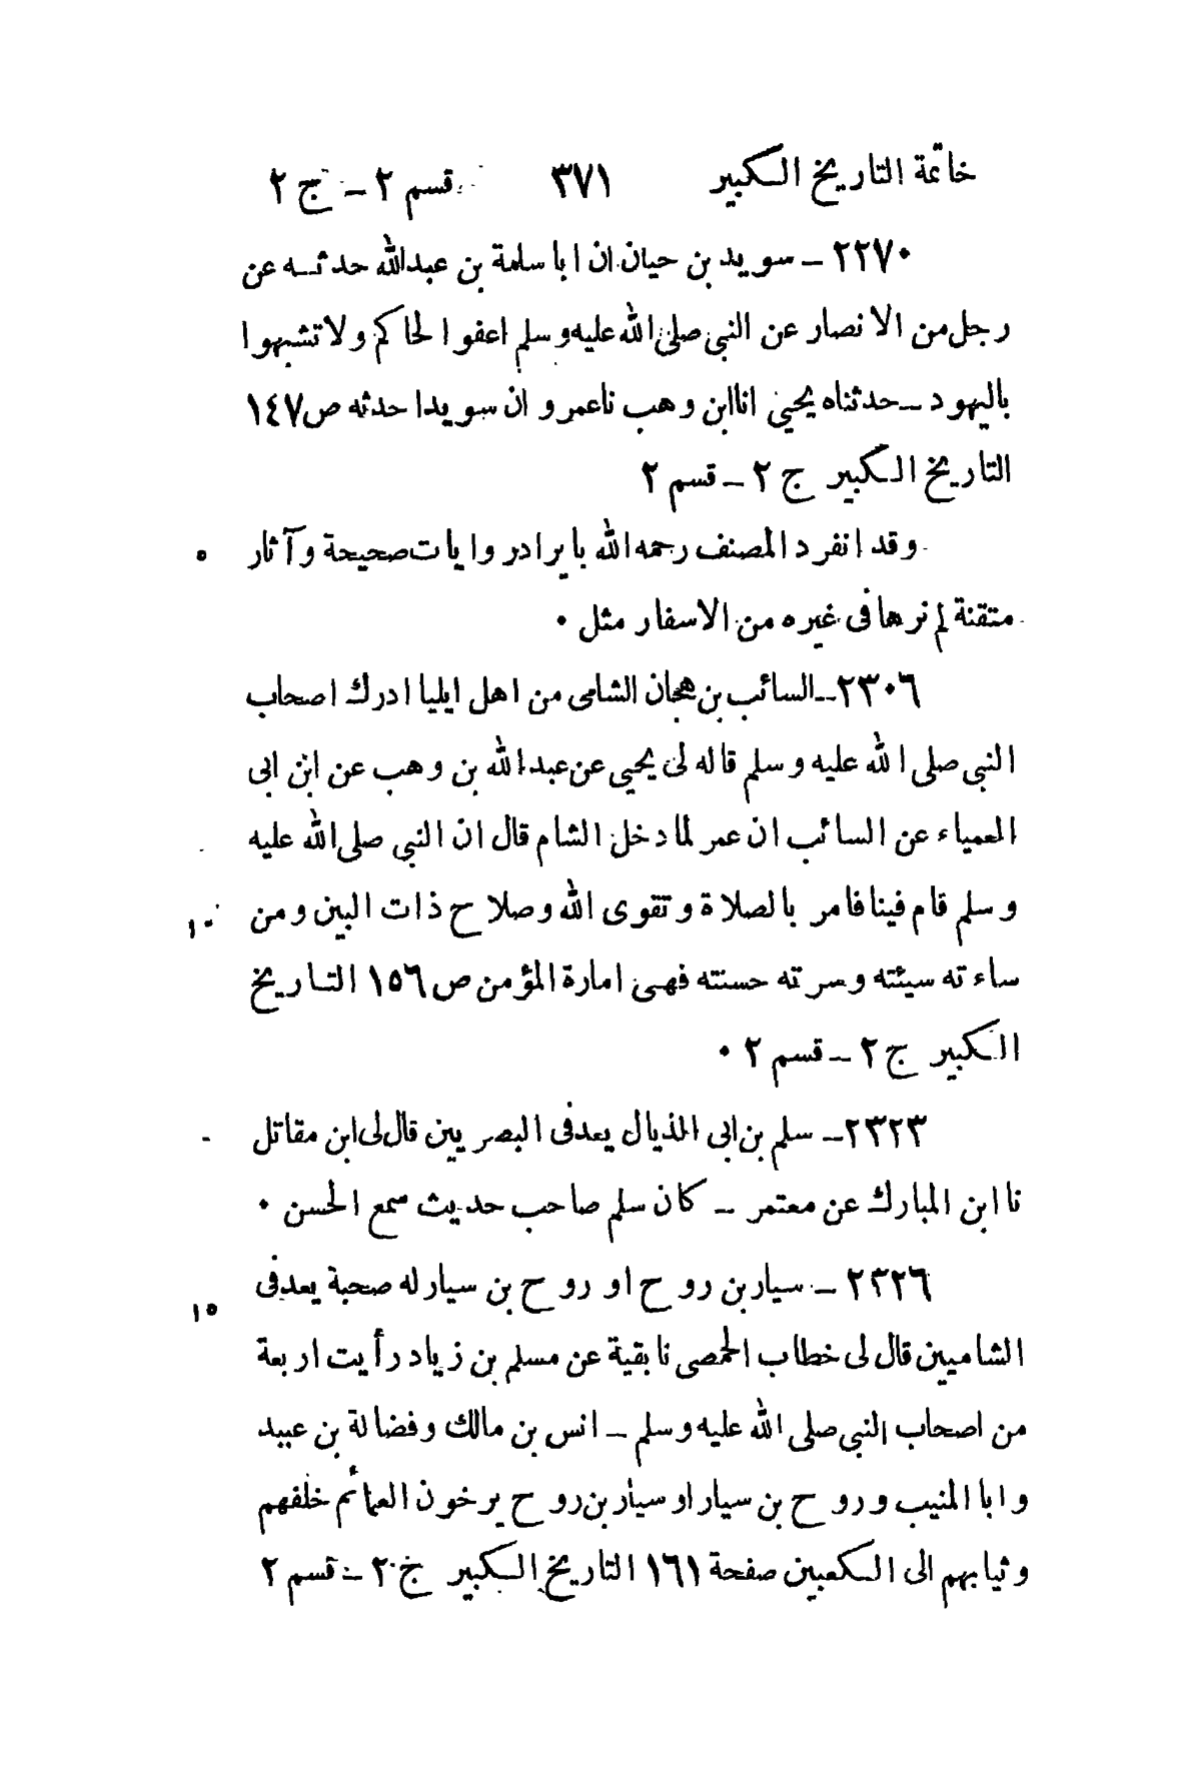 خاتمة التاريخ الكبير ٣٧١ قسم ٢ – ج ٢
٢٢٧٠ – سويد بن حيان ان ابا سلمة بن عبدالله حدثه عن
رجل من الانصار عن النبي صلى الله عليه وسلم اعفوا لحاكم ولا تشبهوا
باليهود – حدثناه يحيى انا ابن وهب نا عمرو ان سويدا حدثه ص ١٤٧
التاريخ الكبير ج ٢ – قسم ٢
وقد انفرد المصنف رحمه الله بايراد روايات صحيحة وآثار ٥
متقنة لم نرها فى غيره من الاسفار مثل ٠
٢٣٠٦ – السائب بن هجان الشامى من اهل ايليا ادرك اصحاب
النبي صلى الله عليه وسلم قاله لى يحيى عن عبد الله بن وهب عن ابن ابى
العمياء عن السائب ان عمر لما دخل الشام قال ان النبي صلى الله عليه
وسلم قام فينا فامر بالصلاة وتقوى الله وصلاح ذات البين ومن ١٠
ساءته سيئته وسرته حسنته فهى امارة المؤمن ص ١٥٦ التاريخ
الكبير ج ٢ – قسم ٢ ٠
٢٣٢٣ – سلم بن ابى الذيال يعد فى البصريين قال لى ابن مقاتل
نا ابن المبارك عن معتمر – كان سلم صاحب حديث سمع الحسن ٠
٢٣٢٦ – سيار بن روح او روح بن سيار له صحبة يعد فى ١٥
الشاميين قال لى خطاب الحمصى نا بقية عن مسلم بن زياد رأيت اربعة
من اصحاب النبي صلى الله عليه وسلم – انس بن مالك وفضالة بن عبيد
وابا المنيب وروح بن سيار او سيار بن روح يرخون العمائم خلفهم
وثيابهم الى الكعبين صفحة ١٦١ التاريخ الكبير ج ٢ – قسم ٢